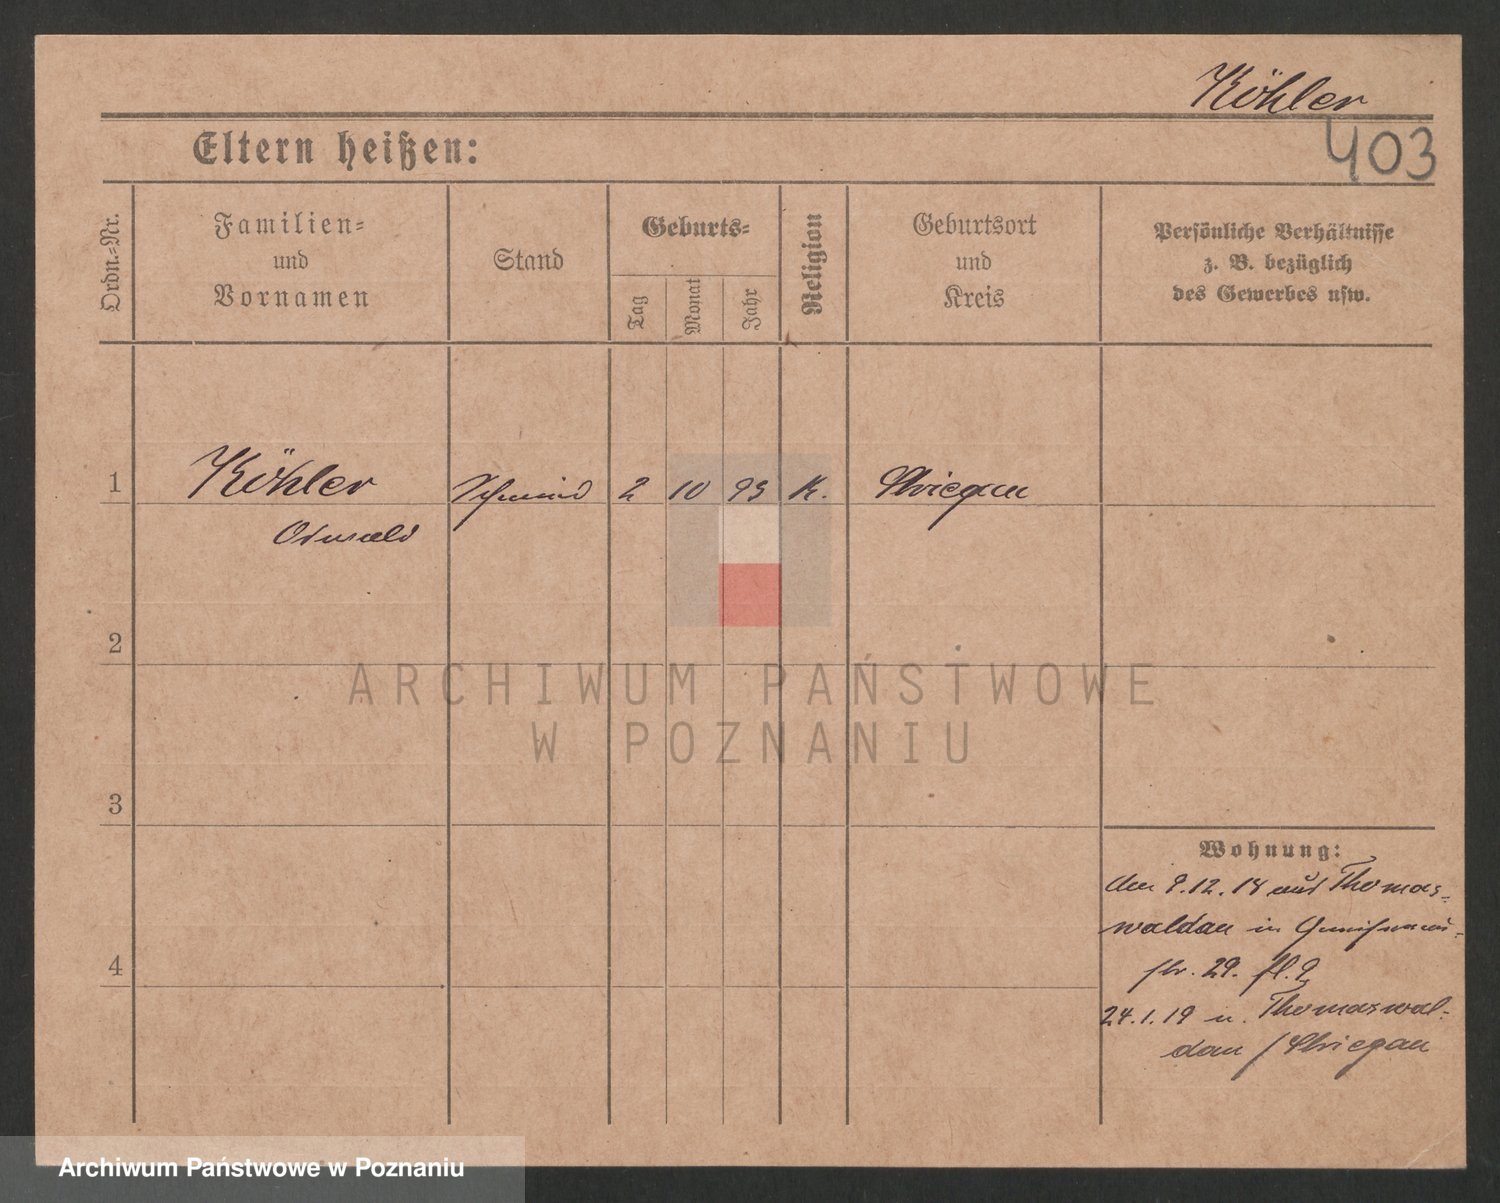 Köhler
403
Eltern heißen:
Ordn.-Nr.
Familien-
und
Vornamen
Stand
Geburts-
Tag
Monat
Jahr
Religion
Geburtsort
und
Kreis
Persönliche Verhältnisse
z. B. bezüglich
des Gewerbes usw.
1
Köhler
Schmied
2 10 93
K.
Striegau
Oswald
2
ARCHIWUM PAŃSTWOWE
W POZNANIU
3
Wohnung:
den 9.12.18 aus Thomas-
waldau in
str. 29.
4
24.1.19 n. Thomaswal-
dau / Striegau
Archiwum Państwowe w Poznaniu